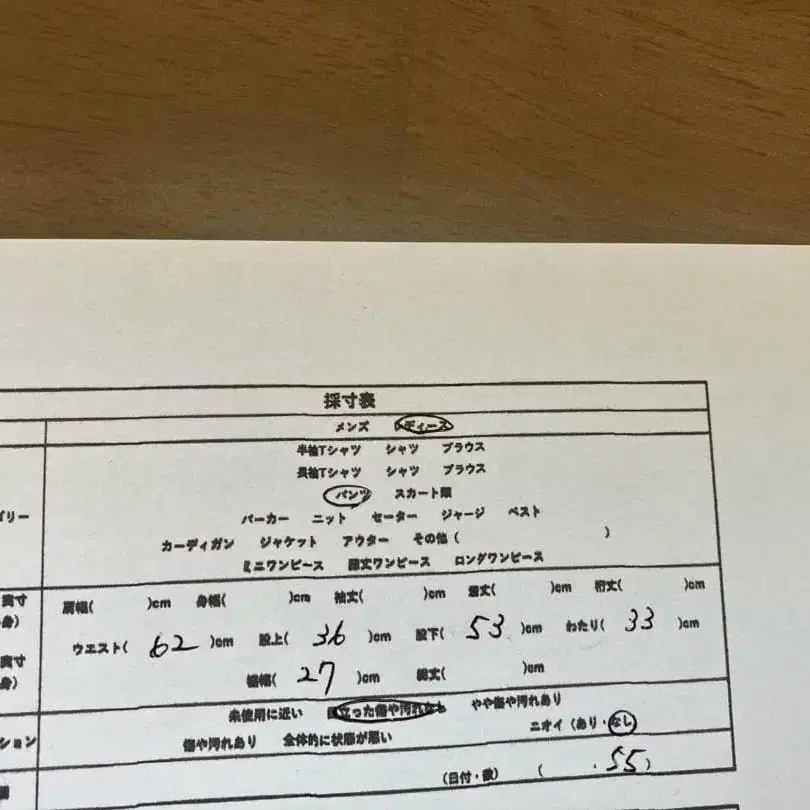 採寸表
メンズ レディース
半袖Tシャツ シャツ ブラウス
長袖Tシャツ シャツ ブラウス
ゴリー
パンツ スカート類
パーカー ニット セーター ジャージ ベスト
カーディガン ジャケット アウター その他 ( )
ミニワンピース 膝丈ワンピース ロングワンピース
実寸 肩幅( )cm 身幅( )cm 袖丈( )cm 着丈( )cm 裄丈( )cm
身)
ウエスト( 62 )cm 股上( 36 )cm 股下( 53 )cm わたり( 33 )cm
実寸
身) 裾幅( 27 )cm 総丈( )cm
未使用に近い 目立った傷や汚れなし やや傷や汚れあり
ション 傷や汚れあり 全体的に状態が悪い ニオイ (あり・なし)
(日付・数) ( . 55 )